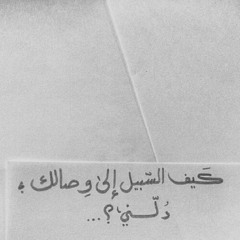 كَيف السّبيل إلىٰ وِصالك ؛
دُلّنيّ ؟ ...